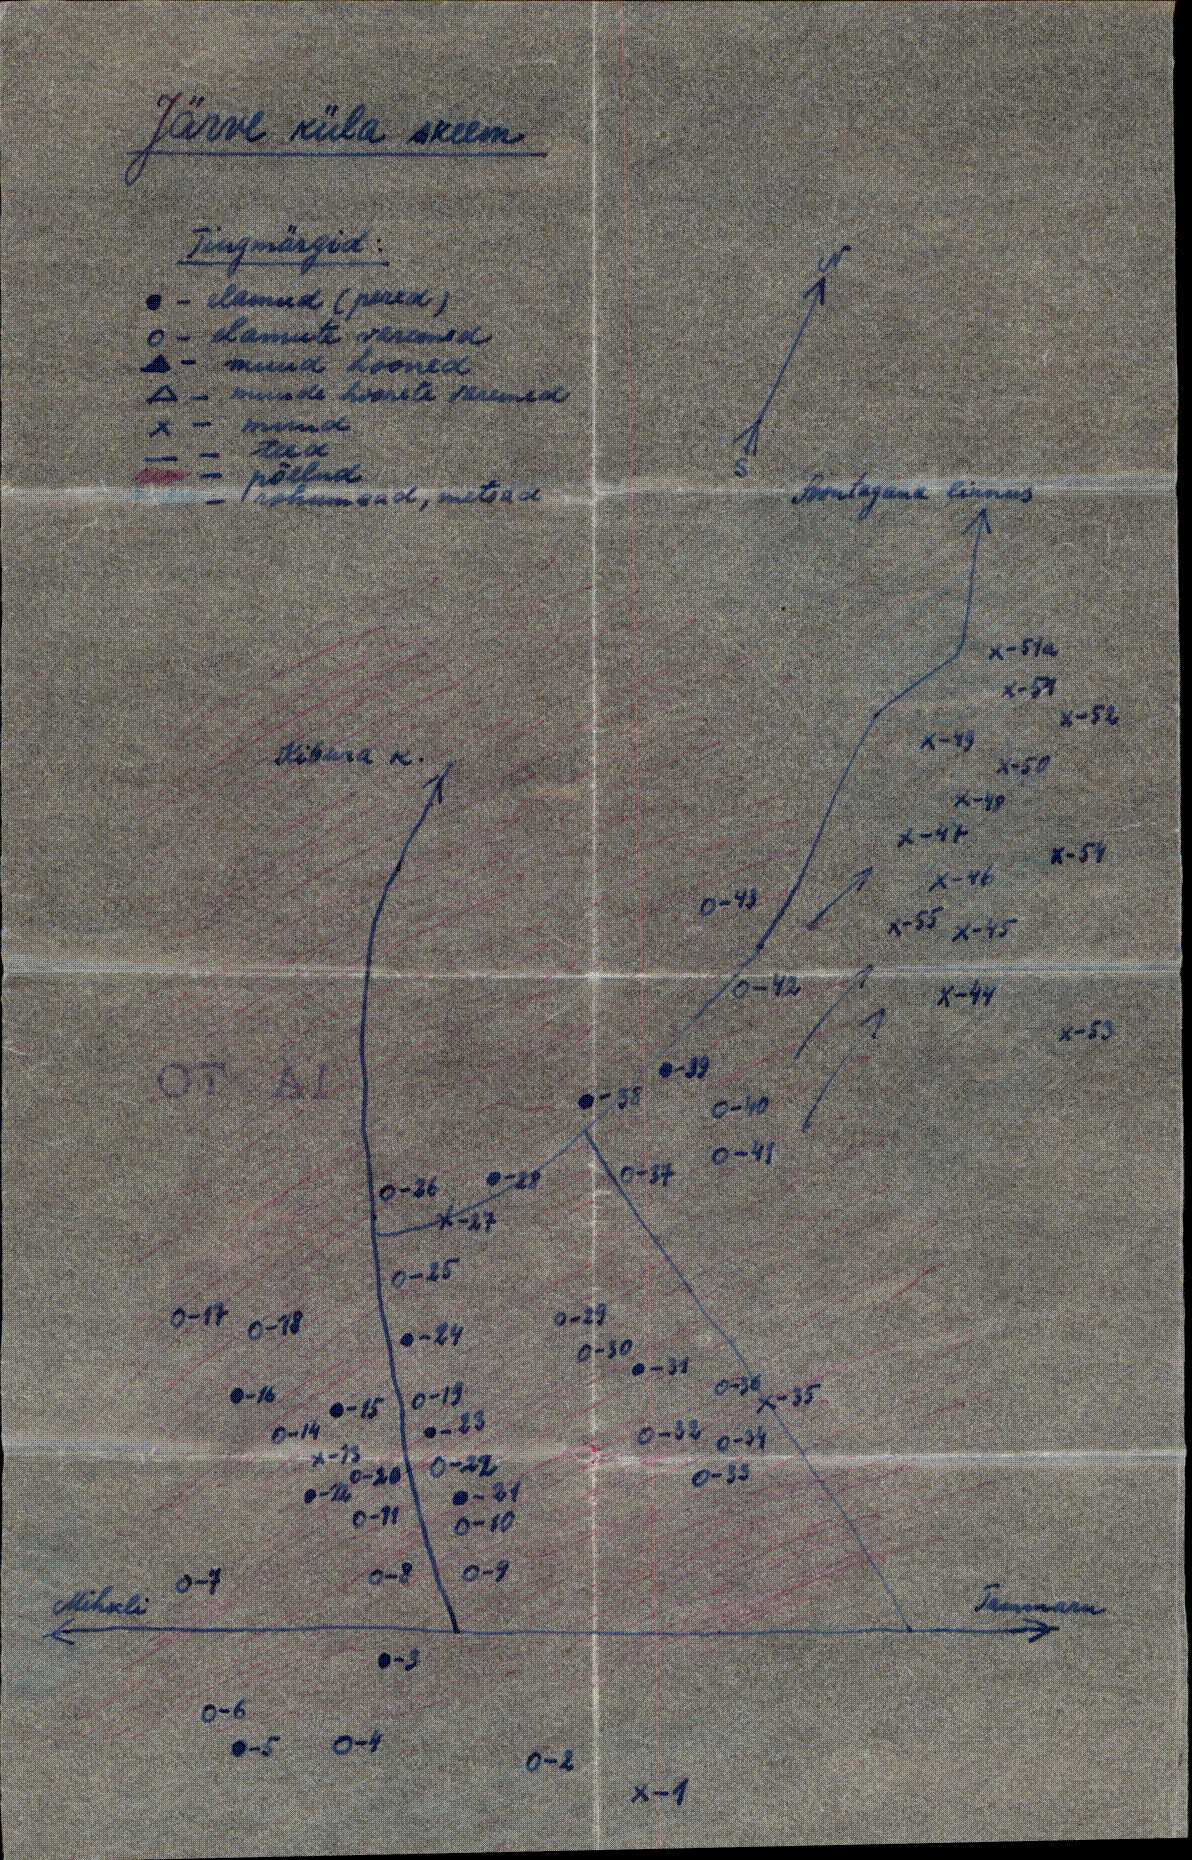 Järve küla skeem
Tingmärgid:
● - elamud (pered)
o - elamute varemed
▲ - muud hooned
△ - muude hoonete varemed
x - muud
— - teed
- põllud
- rohumaad, metsad
N
S
Soontagana linnus
x-51a
x-51
x-52
x-49
x-50
x-48
Kibura k.
x-47
x-54
x-46
o-43
x-55
x-45
o-42
x-44
x-53
●-39
●-38
o-40
o-41
o-37
●-28
o-26
x-27
o-25
o-17
o-18
●-24
o-29
o-30
●-31
●-16
●-15
o-19
o-36
x-35
o-14
●-23
o-32
o-34
x-13
o-20
o-22
o-33
●-12
●-21
o-11
o-10
o-7
o-8
o-9
Mihkli
Tammaru
●-3
o-6
●-5
o-4
o-2
x-1